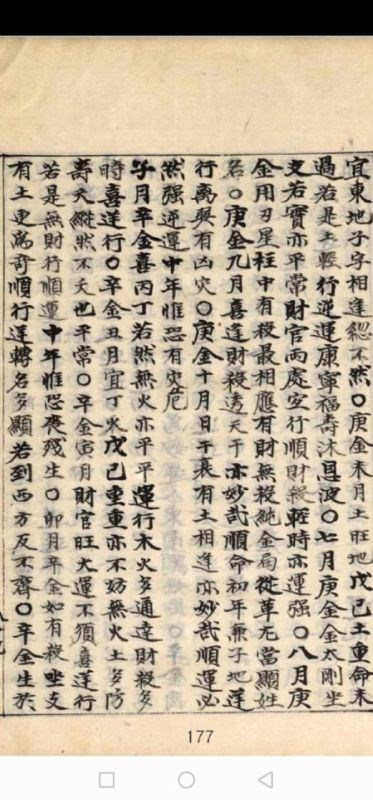 宜東地子字相逢總不然〇庚金未月土旺地戊己土重命未
過若是土輕行逆運康寧福壽沐恩波〇七月庚金金太剛坐
支若實亦平常財官兩處空行順財殺輕時亦運强〇八月庚
金用刃星柱中有殺最相應有財無殺純金局從革尤當顯姓
名〇庚金九月喜逢財殺透天干亦妙哉順命初年兼子地逆
行离與有凶灾〇庚金十月日干衰有土相逢亦妙哉順運必
然强逆運中年惟恐有灾危
子月辛金喜丙丁若然無火亦平平運行木火多通達財殺多
時喜逆行〇辛金丑月宜丁火戊己重重亦不妨無火土多防
壽夭縱然不夭也平常〇辛金寅月財官旺大運不須喜逆行
若是無財行順運中年惟恐喪殘生〇卯月辛金如有殺坐支
有土更為奇順行運轉名多顯若到西方反不齊〇辛金生於
177